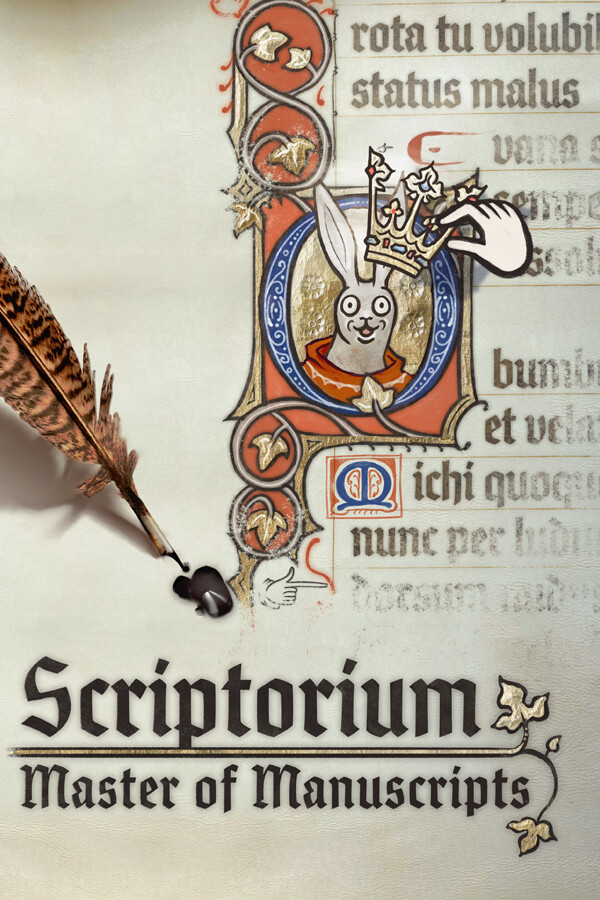 rota tu volubil
status malus
vana s
sempe
ssol
bumb
et vela
Michi quoque
nunc per ludu
dorsum nudu
Scriptorium
Master of Manuscripts